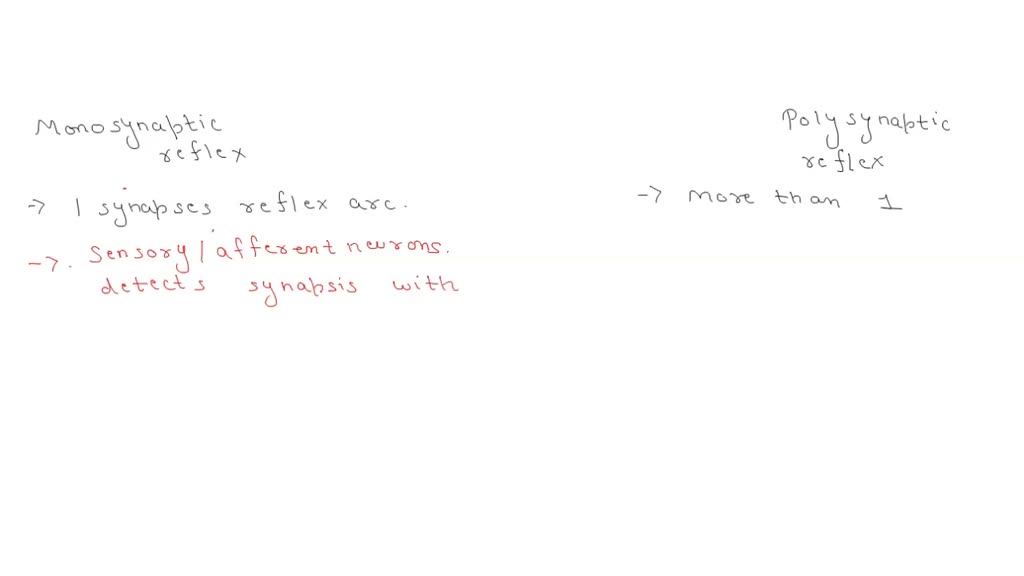 Monosynaptic
reflex
-> 1 synapses reflex arc.
->. Sensory / afferent neurons.
detects synapsis with
Polysynaptic
reflex
-> more than 1